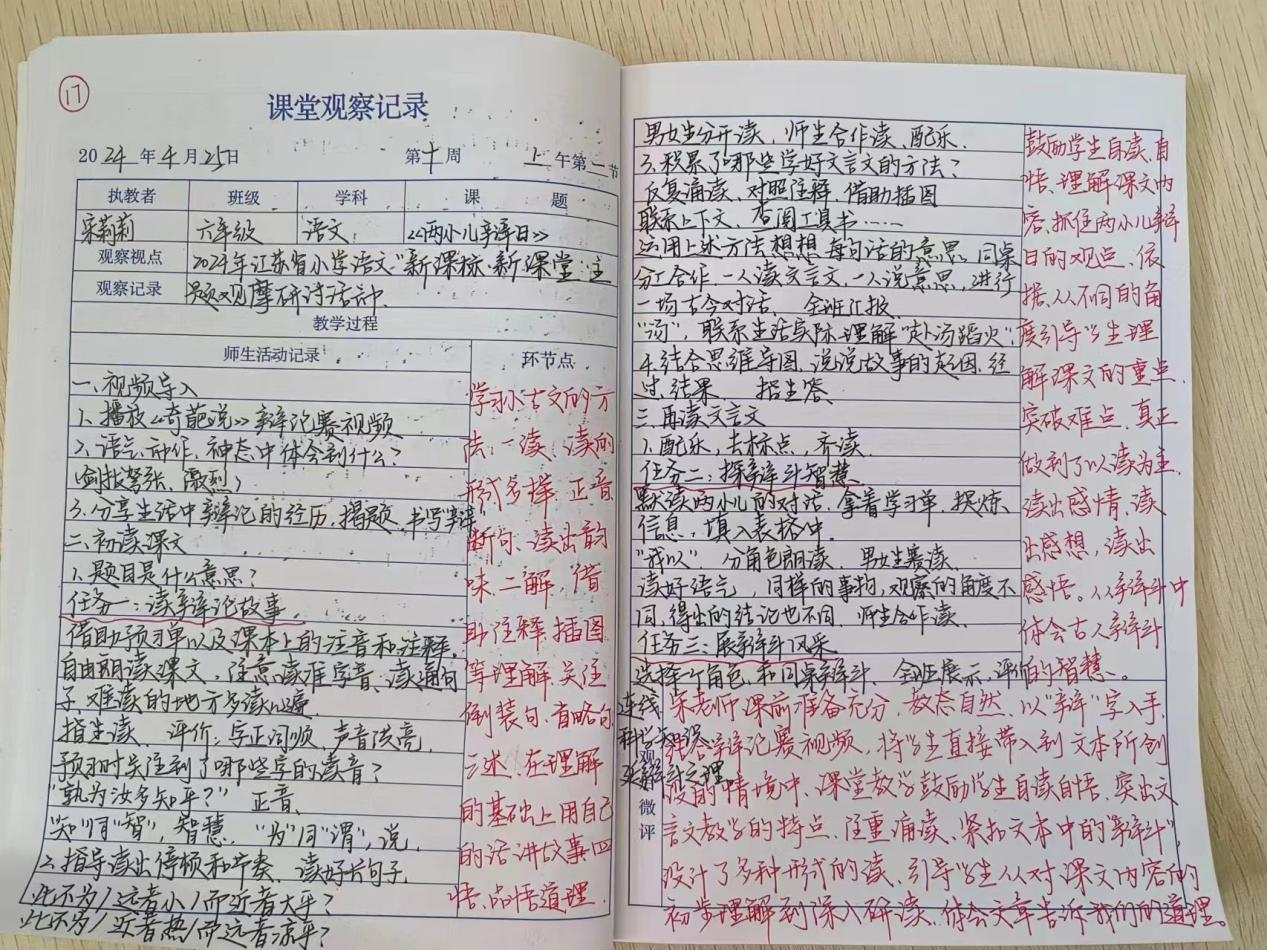 17
课堂观察记录
2024年4月25日 第十周 上午第一节
执教者 班级 学科 课题
宋莉莉 六年级 语文 《两小儿辩日》
观察视点 2024年江苏省小学语文“新课标·新课堂”主
观察记录 题观摩研讨活动.
教学过程
师生活动记录 环节点
一、视频导入
1、播放《奇葩说》辩论赛视频
2、语气、动作、神态中体会到什么?
(剑拔弩张、激烈)
3、分享生活中辩论的经历,揭题,书写“辩”
二、初读课文
1、题目是什么意思?
任务一:读辩论故事
借助预习单以及课本上的注音和注释,
自由朗读课文,注意读准字音、读通句
子,难读的地方多读几遍
指生读、评价:字正词顺,声音洪亮.
预习时关注到了哪些字的读音?
“孰为汝多知乎?” 正音、
“知”同“智”,智慧. “为”同“谓”,说,
2、指导读出停顿和节奏、读好长句子.
此不为/远者小/而近者大乎?
此不为/近者热/而远者凉乎?
学习小古文的方
法:一读、读的
形式多样、正音
断句、读出韵
味.二解,借
助注释、插图
等理解、关注
倒装句、省略句
三述、在理解
的基础上用自己
的话讲故事.四
悟、品悟道理.
男女生分开读、师生合作读、配乐.
3、积累了哪些学好文言文的方法?
反复诵读、对照注释、借助插图
联系上下文、查阅工具书……
运用上述方法想想每句话的意思、同桌
分工合作、一人读文言文,一人说意思,进行
一场古今对话、全班汇报.
“汤”,联系生活实际理解“赴汤蹈火”,
4、结合思维导图、说说故事的起因、经
过、结果、 指生答
三、再读文言文
1、配乐,去标点,齐读.
任务二:探辩斗智慧
默读两小儿的对话,拿着学习单,提炼
信息,填入表格中.
“我以”、分角色朗读、男女生赛读.
读好语气,同样的事物,观察的角度不
同,得出的结论也不同、师生合作读.
任务三:展辩斗风采
选择一个角色,和同桌辩斗、全班展示,评价
连线
科学知识
鼓励学生自读、自
悟、理解课文内
容,抓住两小儿辩
日的观点、依
据、从不同的角
度引导学生理
解课文的重点、
突破难点,真正
做到了以读为主,
读出感情、读
出感想,读出
感悟。从辩斗中
体会古人辩斗
的智慧。
观
微
评
宋老师课前准备充分,教态自然、以“辩”字入手,
结合辩论赛视频,将学生直接带入到文本所创
设的情境中、课堂教学鼓励学生自读自悟、突出文
言文教学的特点、注重诵读、紧扣文本中的“辩斗”,
设计了多种形式的读、引导学生从对课文内容的
初步理解到深入研读、体会文章告诉我们的道理。